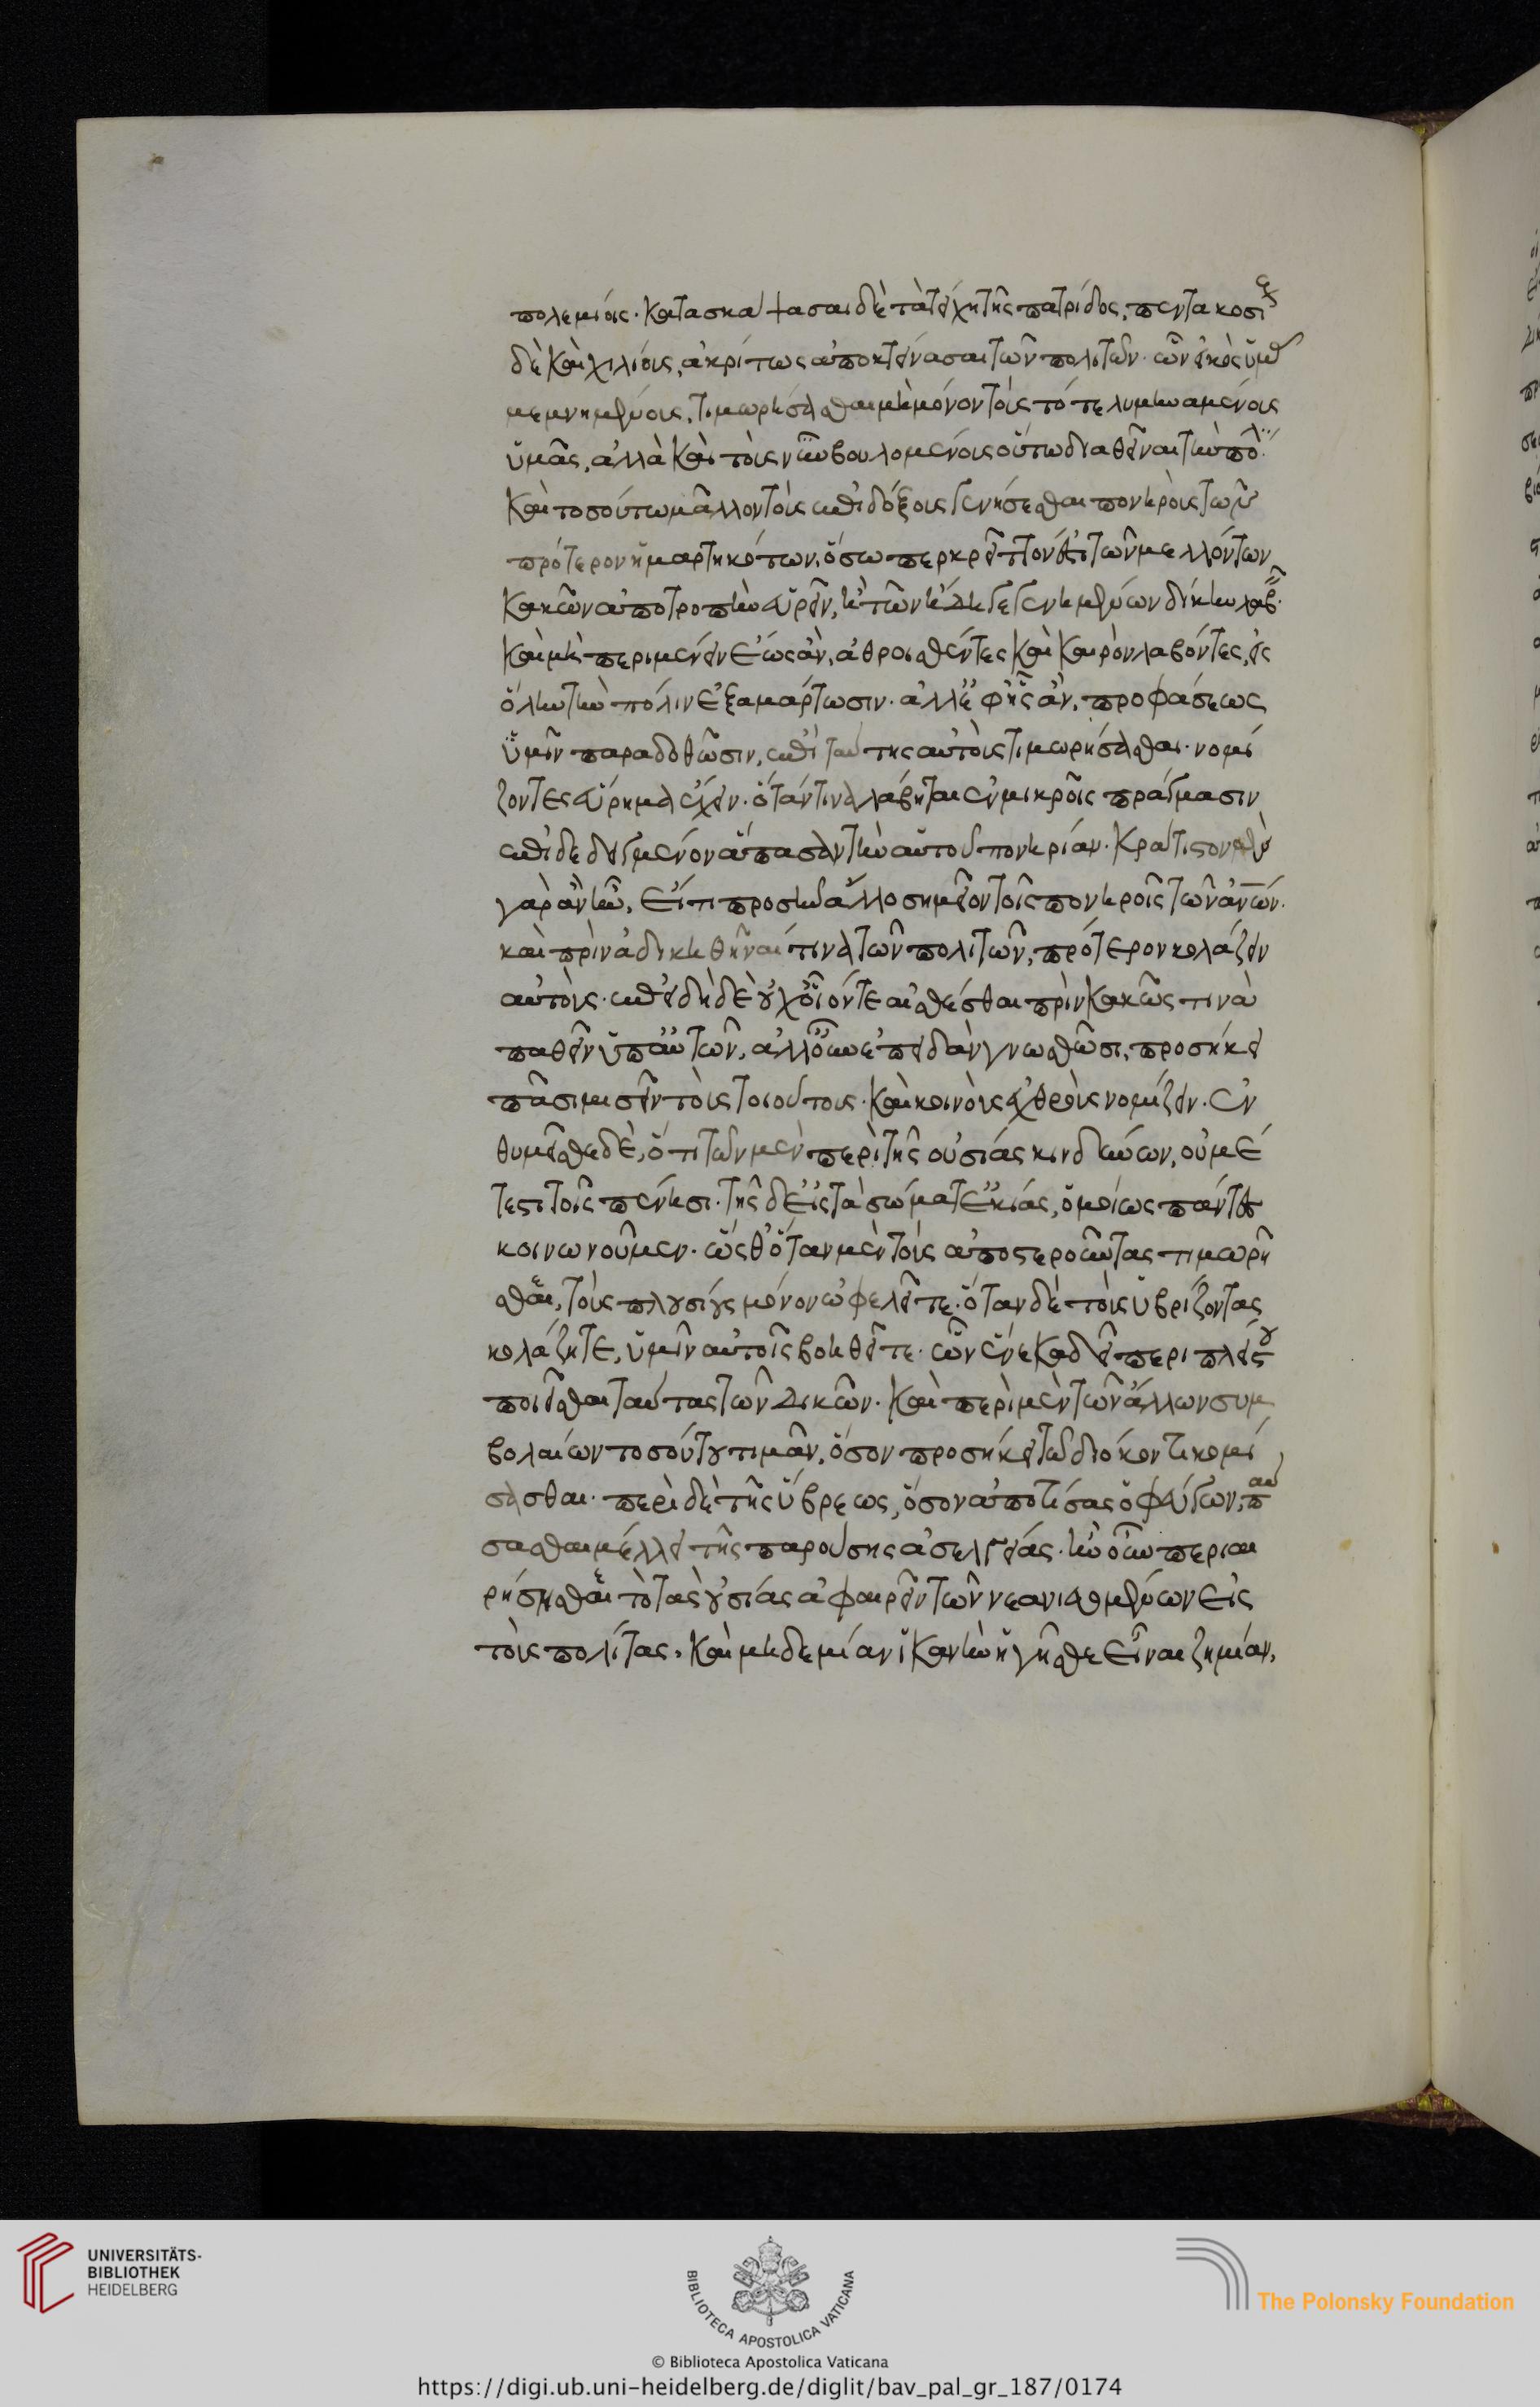 πολεμίοις. κατασκάψασαι δὲ τὰ τείχη τῆς πατρίδος, πεντακοσίους
δὲ καὶ χιλίους, ἀκρίτως ἀποκτείνασαι τῶν πολιτῶν. ὧν εἰκὸς ὑμᾶς
μεμνημένους, τιμωρήσασθαι μὴ μόνον τοὺς τότε λυμηναμένους
ὑμᾶς, ἀλλὰ καὶ τοὺς νῦν βουλομένους οὕτω διαθεῖναι τὴν πόλιν.
καὶ τοσούτω μᾶλλον τοὺς ἐπιδόξους γενήσεσθαι πονηροὺς τῶν
πρότερον ἡμαρτηκότων, ὅσω περ κρεῖττόν ἐστι τῶν μελλόντων
κακῶν ἀποτροπὴν εὑρεῖν, ἢ τῶν ἤδη γεγενημένων δίκην λαβεῖν.
καὶ μὴ περιμένειν ἕως ἂν, ἀθροισθέντες καὶ καιρὸν λαβόντες, εἰς
ὅλην τὴν πόλιν ἐξαμάρτωσιν. ἀλλ' ἐφ' ἧς ἂν, προφάσεως
ὑμῖν παραδοθῶσιν, ἐπὶ ταύτης αὐτοὺς τιμωρήσασθαι. νομί
ζοντες εὕρημα ἔχειν. ὅταν τινὰ λάβητε ἐν μικροῖς πράγμασιν
ἐπιδεδειγμένον ἅπασαν τὴν αὑτοῦ πονηρίαν. κράτιστον μὲν
γὰρ ἂν ἦν, εἴ τι προσῆν ἄλλο σημεῖον τοῖς πονηροῖς τῶν ἀνῶν.
καὶ πρὶν ἀδικηθῆναί τινα τῶν πολιτῶν, πρότερον κολάζειν
αὐτούς. ἐπειδὴ δὲ οὐχ οἷόν τε αἰσθέσθαι πρὶν κακῶς τινὰ
παθεῖν ὑπ' αὐτῶν, ἀλλ' οὖν ἐπειδὰν γνωσθῶσι, προσήκει
πᾶσι μισεῖν τοὺς τοιούτους. καὶ κοινοὺς ἐχθροὺς νομίζειν. ἐν
θυμεῖσθε δὲ, ὅτι τῶν μὲν περὶ τῆς οὐσίας κινδύνων, οὐ μέ
τεστι τοῖς πένησι. τῆς δ' εἰς τὰ σώματ' αἰκίας, ὁμοίως πάντες
κοινωνοῦμεν. ὥσθ' ὅταν μὲν τοὺς ἀποστεροῦντας τιμωρῆ
σθε, τοὺς πλουσίους μόνον ὠφελεῖτε. ὅταν δὲ τοὺς ὑβρίζοντας
κολάζητε, ὑμῖν αὐτοῖς βοηθεῖτε. ὧν ἕνεκα δεῖ περὶ πλείστου
ποιεῖσθαι ταύτας τῶν δικῶν. καὶ περὶ μὲν τῶν ἄλλων συμ
βολαίων τοσούτου τιμᾶν, ὅσον προσήκει τῶ διώκοντι κομί
σασθαι. περὶ δὲ τῆς ὕβρεως, ὅσον ἀποτίσας ὁ φεύγων, παύ
σασθαι μέλλει τῆς παρούσης ἀσελγείας. ἢν οὖν περιαι
ρήσησθε τὸ τὰς οὐσίας ἀφαιρεῖν τῶν νεανιευομένων εἰς
τοὺς πολίτας. καὶ μηδεμίαν ἱκανὴν ἡγῆσθε εἶναι ζημίαν,
UNIVERSITÄTS-
BIBLIOTHEK
HEIDELBERG
BIBLIOTECA APOSTOLICA VATICANA
The Polonsky Foundation
© Biblioteca Apostolica Vaticana
https://digi.ub.uni-heidelberg.de/diglit/bav_pal_gr_187/0174